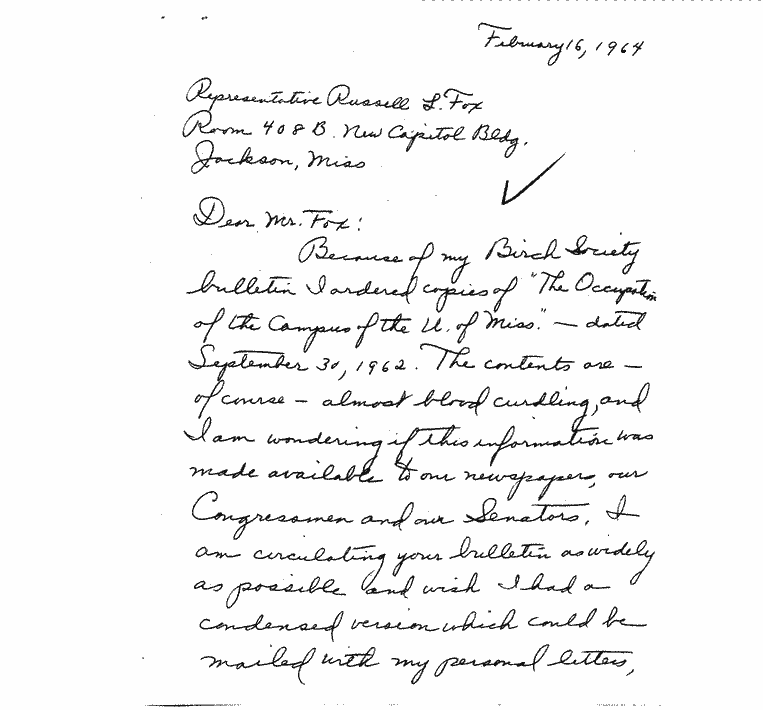 February 16, 1964
Representative Russell L. Fox
Room 408 B. New Capitol Bldg.
Jackson, Miss
Dear Mr. Fox:
Because of my Birch Society
bulletin I ordered copies of "The Occupation
of the Campus of the U. of Miss." — dated
September 30, 1962. The contents are —
of course — almost blood curdling, and
I am wondering if this information was
made available to our newspapers, our
Congressmen and our Senators. I
am circulating your bulletin as widely
as possible and wish I had a
condensed version which could be
mailed with my personal letters,